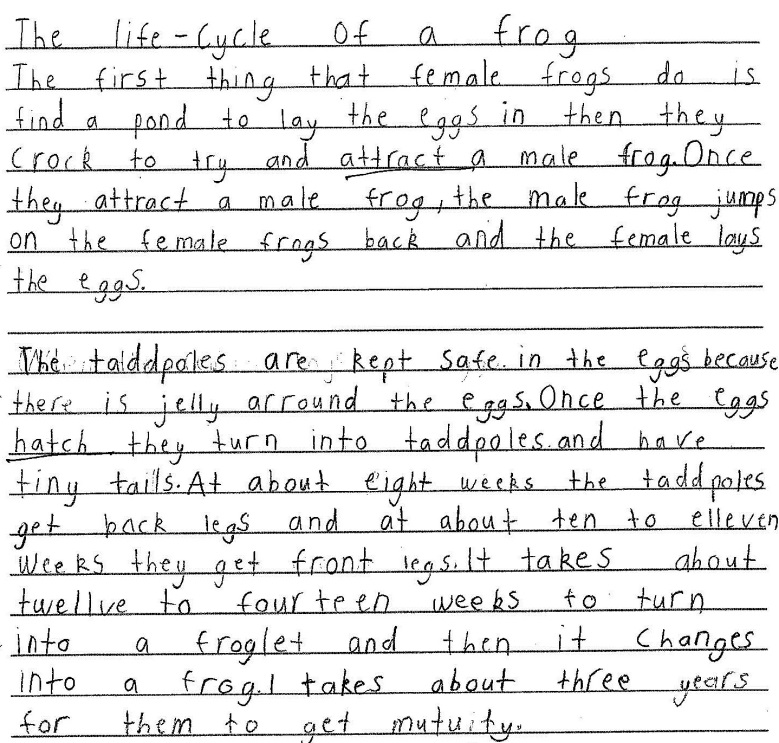 The life-Cycle Of a frog
The first thing that female frogs do is
find a pond to lay the eggs in then they
Crock to try and attract a male frog. Once
they attract a male frog, the male frog jumps
on the female frogs back and the female lays
the eggs.
The taddpoles are kept safe in the eggs because
there is jelly arround the eggs. Once the eggs
hatch they turn into taddpoles. and have
tiny tails. At about eight weeks the taddpoles
get back legs and at about ten to elleven
weeks they get front legs. It takes about
twellve to fourteen weeks to turn
into a froglet and then it Changes
into a frog. I takes about three years
for them to get mutuity.